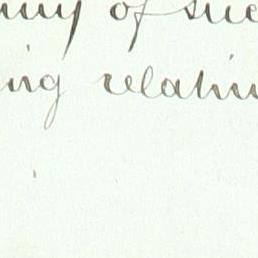 of suc
ing relatin